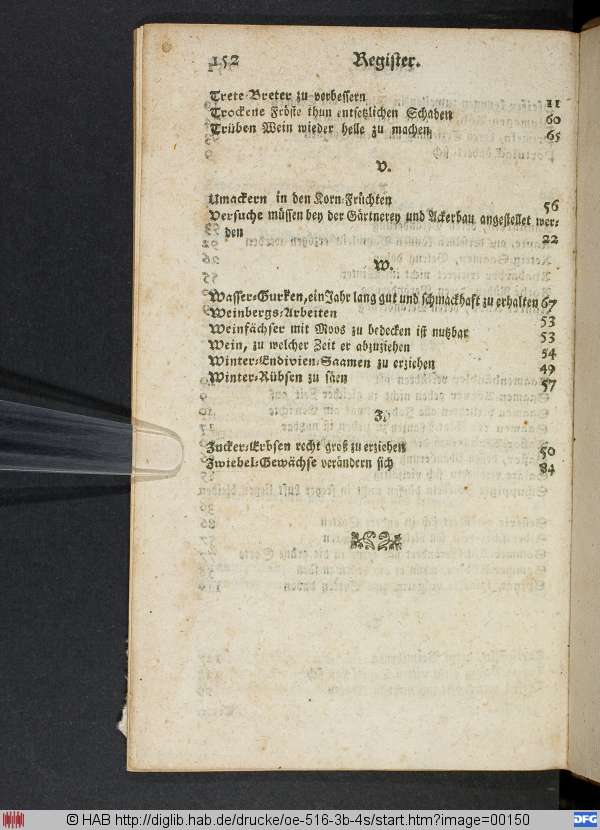 152 Register.
Trete-Breter zu verbessern 11
Trockene Fröste thun entsetzlichen Schaden 60
Trüben Wein wieder helle zu machen 65
V.
Umackern in den Korn-Früchten 56
Versuche müssen bey der Gärtnerey und Ackerbau angestellet wer-
den 22
W.
Wasser-Gurken, ein Jahr lang gut und schmackhaft zu erhalten 67
Weinbergs-Arbeiten 53
Weinfächser mit Moos zu bedecken ist nutzbar 53
Wein, zu welcher Zeit er abzuziehen 54
Winter-Endivien-Saamen zu erziehen 49
Winter-Rübsen zu säen 57
Z.
Zucker-Erbsen recht groß zu erziehen 50
Zwiebel-Gewächse verändern sich 84
© HAB http://diglib.hab.de/drucke/oe-516-3b-4s/start.htm?image=00150
DFG